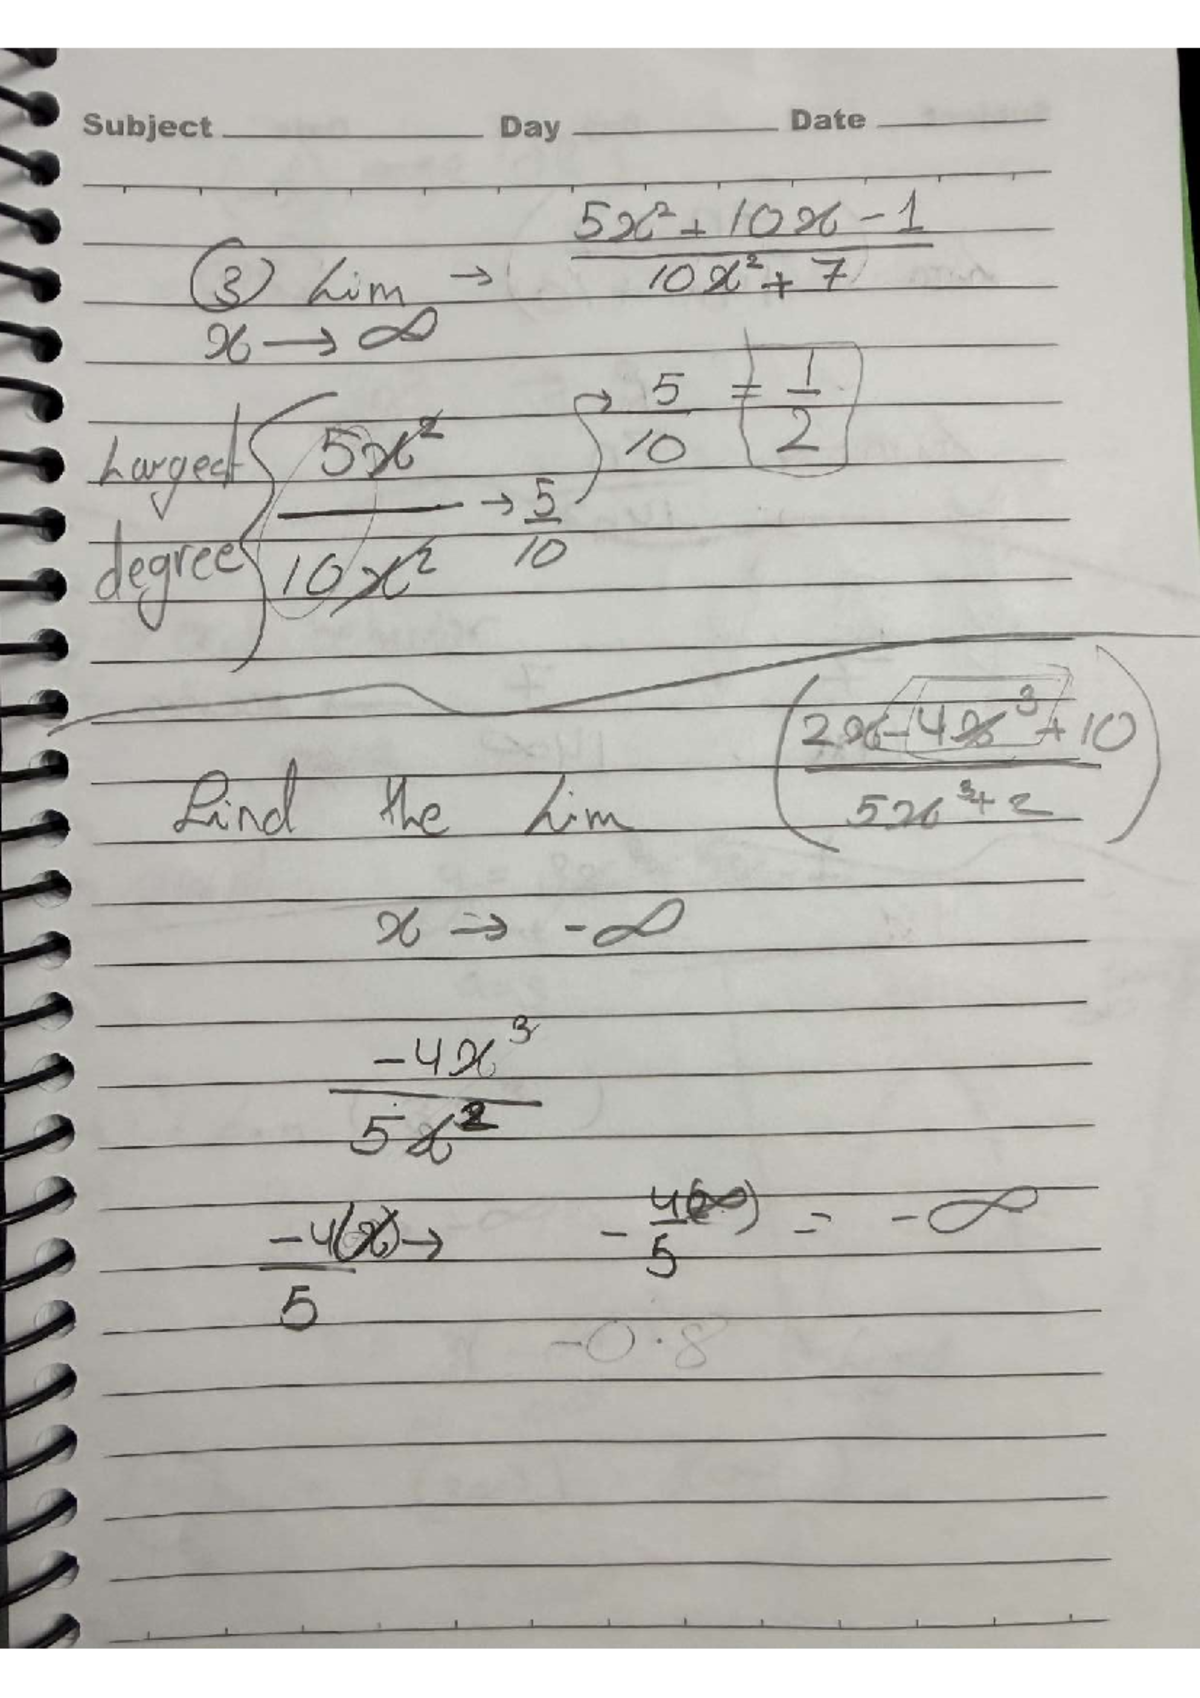 Subject Day Date
③ Lim → (5x² + 10x - 1)/(10x² + 7)
x → ∞
Largest degree { 5x²/10x² → 5/10 → 5/10 = 1/2
Find the Lim ((2x - 4x³ + 10)/(5x³ + 2))
x → -∞
-4x³/5x²
-4(x)/5 → -4(∞)/5 = -∞
-0.8